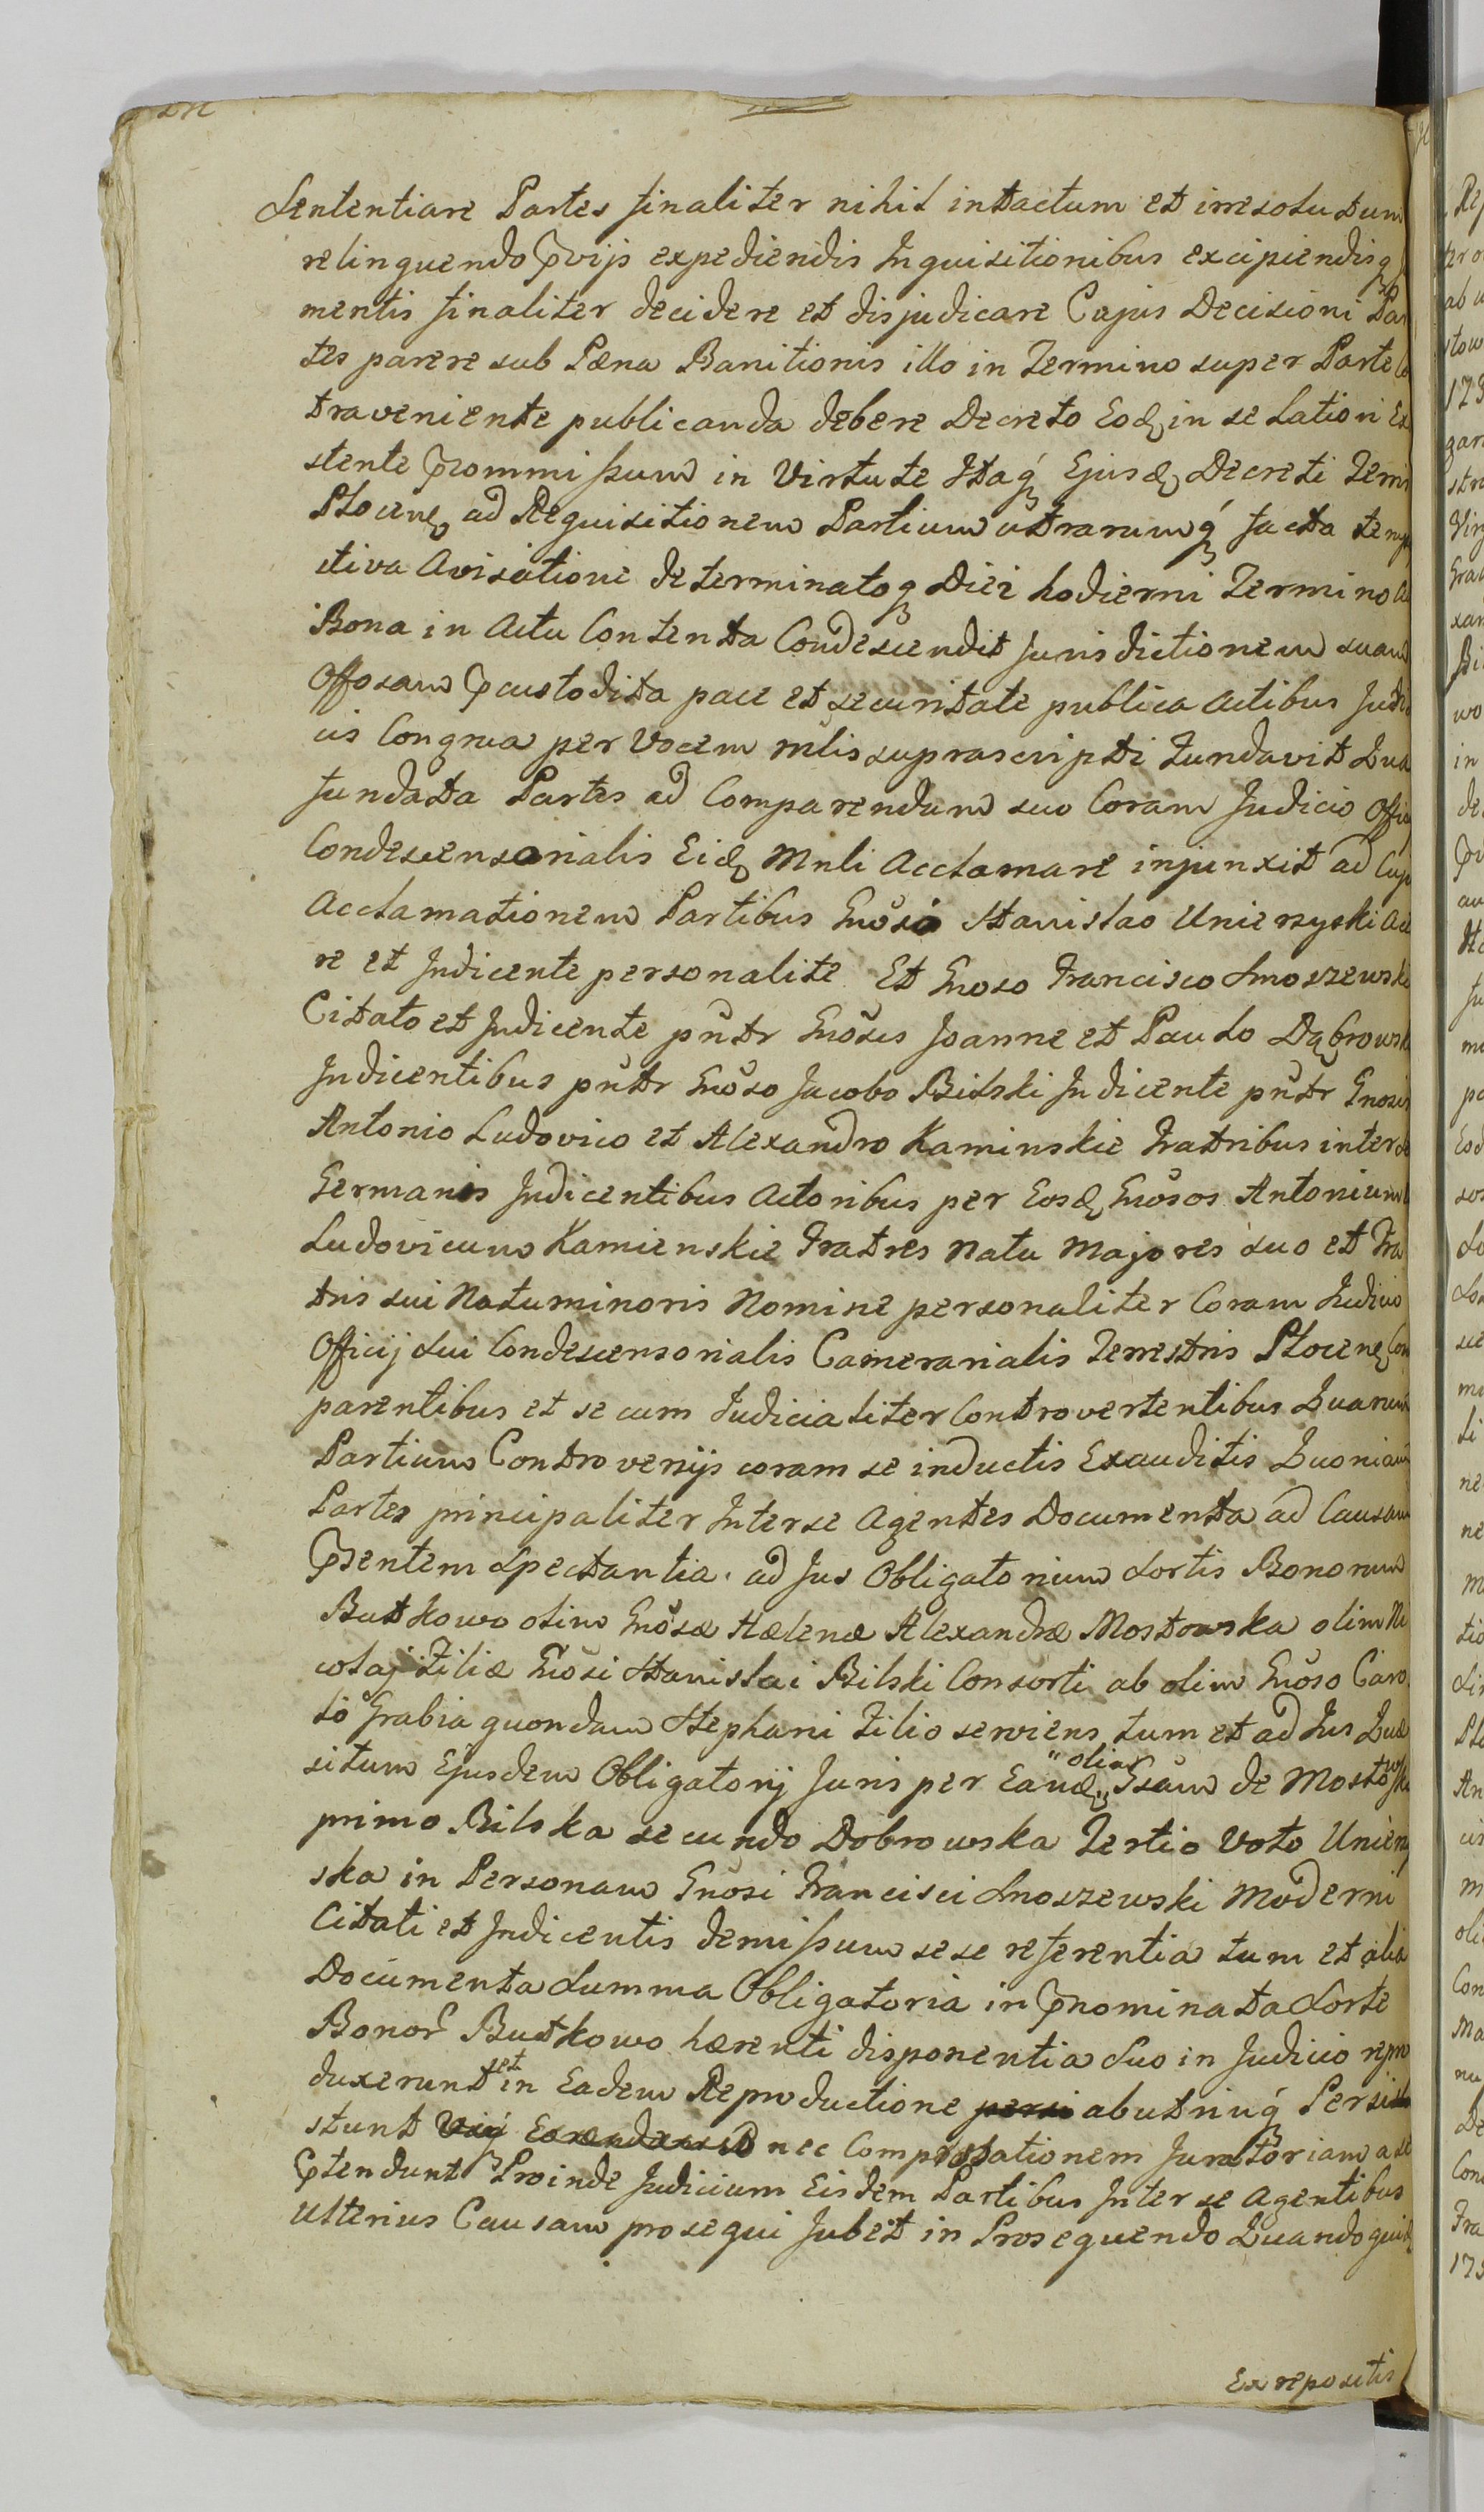 Sententiare Partes finaliter nihil intactum et irresolutum
relinquendo prvijs expediendis Inquisitionibus excipiendisq
mentis finaliter decidere et disjudicare Cujus Decisioni Par
tes parere sub Pæna Banitionis illo in Termino super Parte
traveniente publicanda debere Decreto Eod in se Lationi Exi
stente prommissum in Virtute Itaq Ejusd Decreti Terr
Plocen ad Requisitionem Partium utrarumq facta temp
stiva Avisatione determinatoq Diei hodierni Termino Ad
Bona in Actu Contenta Condescendit Jurisdictionem suam
Offosam prcustodita pace et securitate publica Actibus Judi
cis Congrua per Vocem mlis suprascripti Fundavit Qua
fundata Partes ad Comparendum suo Coram Judicio Offici
Condescensorialis Eid Mnli Acclamare injunxit ad Cuju
Acclamationem Partibus Gnoso Stanislao Unierzyski Acto
re et Judicente personalite Et Gnoso Francisco Smoszewski
Citato et Judicente pntr Gnosis Joanne et Paulo Dąbrowski
Judicentibus pntr Gnoso Jacobo Bilski Judicente pntr Gnosis
Antonio Ludovico et Alexandro Kaminskie Fratribus inter se
Germanis Judicentibus Actoribus per Eosd Gnosos Antonium
Ludovicum Kamienskie Fratres Natu Majores suo et Fra
tris sui Natuminoris Nomine personaliter Coram Judicio
Officij Sui Condescensorialis Camerarialis Terrestris Plocen Com
parentibus et se cum Judicialiter Controvertentibus Quarum
Partium Controversijs coram se inductis Exauditis Quoniam
Partes principaliter Inter se Agentes Documenta ad Causam
prsentem Spectantia ad Jus Obligatorium Sortis Bonorum
Butkowo olim Gnosæ Hælenæ Alexandræ Mostowska olim Ni
colaj Filiæ Gnosi Stanislai Bilski Consorti ab olim Gnoso Caro
lo Grabia quondam Stephani Filio serviens tum et ad Jus Quæ
situm Ejusdem Obligatorij Juris per Eand olim Gsam de Mostowskie
primo Bilska secundo Dobrowska Tertio Voto Unierzy
ska in Personam Gnosi Francisci Smoszewski Moderni
Citati et Judicentis demissum sese referentia tum et alia
Documenta Summa Obligatoria in prnominata Sorte
Bonor Butkowo hærenti disponentia Suo in Judicio repro
duxerunt et in Eadem Reproductione abutriuq Persi
stunt nec Comprobationem Juratoriam a se
prtendunt Proinde Judicium Eisdem Partibus Inter se Agentibus
Ulterius Causam prosequi Jubet in Prosequendo Quandoquid
Ex repositis